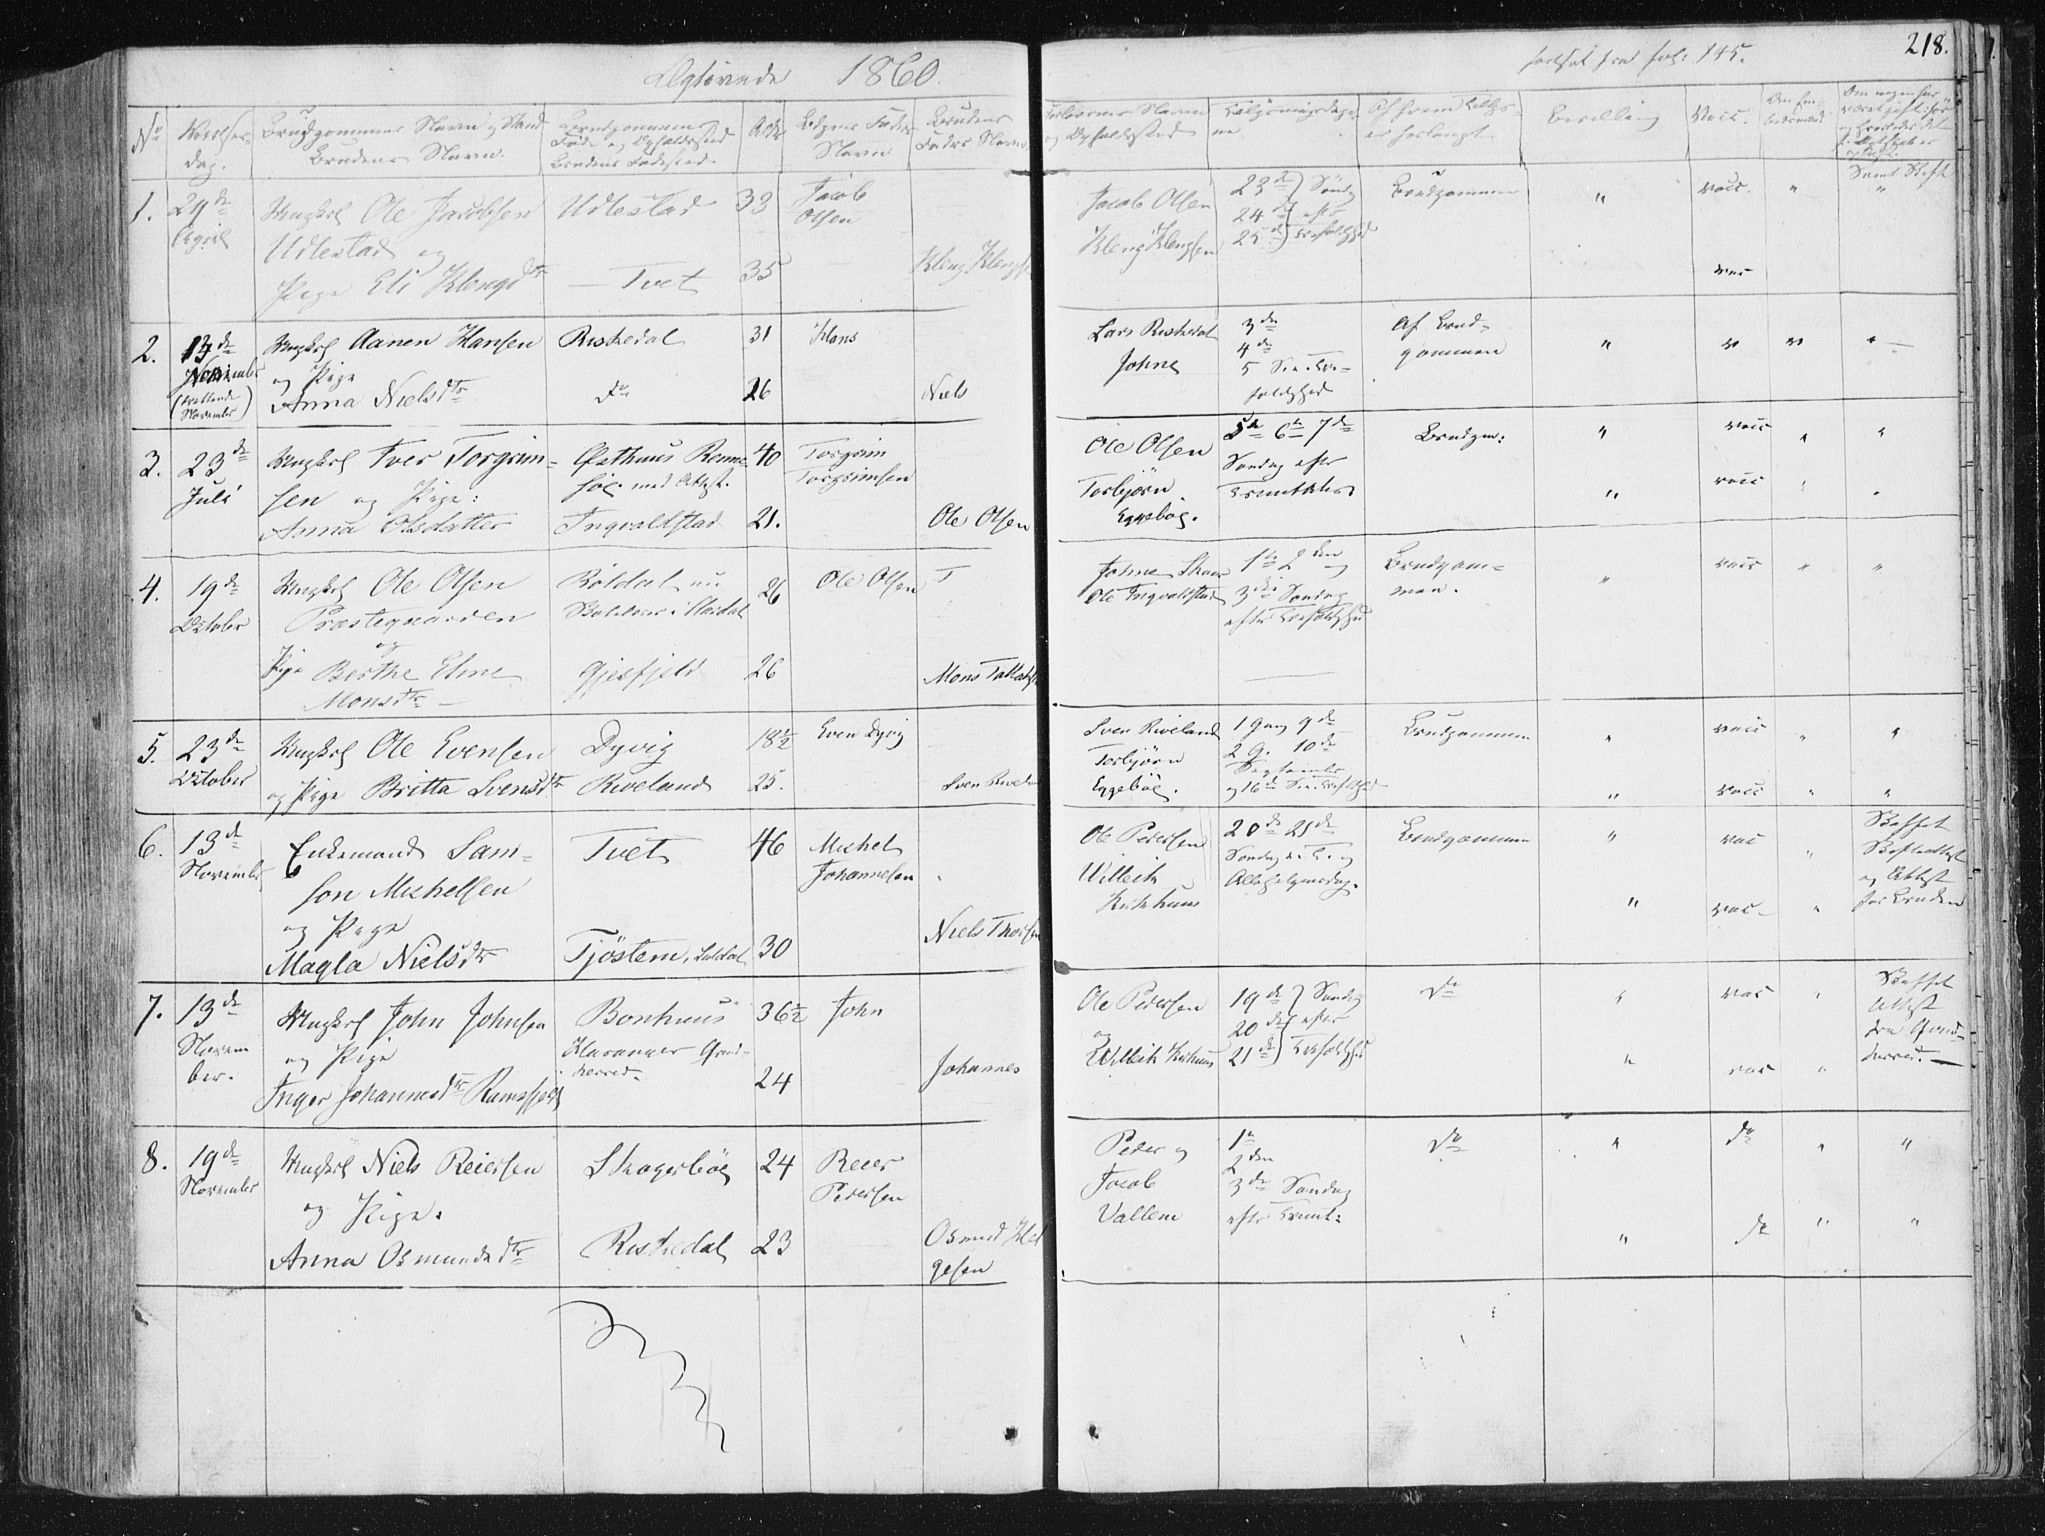 Ægteviede 1860.
fortsat fra fol: 145.
218.
No
Vielses-
dag.
Brudgommens Navn og Stand
Brudens Navn.
Brudgommens
Føde og Opholdssted
Brudens Fødested
Alder
Bdgms Faders
Navn
Brudens
Faders Navn
Forlovernes Navne
og Opholdssted
Af hvem Tillys-
er forlangt.
Bevilling
Vacc.
1.
29de
April
Ungkarl Ole Jacobsen
Udlestad og
Pige Eli Klengsdtr
Udlestad
Tvet
33
35
Jacob
Olsen
Kleng Klengs
Jacob Olsen
Kleng Klengsen
23de Sønd
24de efter
25de Trefoldighed
Brudgommen
"
vacc.
vac
"
Samt. Skift
"
2.
13de
November
Ungkarl Aanen Hansen
og Pige
Anna Nielsdtr
Riskedal
do
31
26
Hans
Niels
Lars Riskedal
Johne
3de
4de
5 Søn. Tre-
foldighed
Af Brud-
gommen
"
3.
23de
Juli
Ungkarl Iver Torgrim-
sen og Pige:
Anna Olsdatter
Østhuus Renne-
söe med Attest.
Ingvaldstad
40
21.
Torgrim
Torgrimsen
Ole Olsen
Ole Olsen
Torbjörn
Eggeböe.
5te 6te 7de
Søndag efter
Trinitatis
Brudgm:
"
vacc
vacc
4.
19de
October
Ungkarl Ole Olsen
Præstegaarden
og
Pige Berthe Eline
Monsdtr
Röldal nu
Gjesfjeld
26
26
Ole Olsen
T
Mons Tallaks
Johne Skaar
Ole Ingvaldstad
1ste 2den og
3die Søndag
efter Trefoldighed
Brudgom-
men.
"
vacc
5.
23de
October
Ungkarl Ole Evensen
og Pige Britta Svensdtr
Dyvig
Riveland
18½
25.
Even Dyvig
Sven Rivela
Sven Riveland
Torbjörn
Eggeböe.
1 Gang 9de
2 G. 10de
September
og 16de Søn. Trefoldighed
Brudgommen
"
vacc
vacc
6.
13de
November
Enkemand Sam-
son Michelsen
og Pige
Magla Nielsdtr
Tvet
Tjöstem, Suldal
46
30
Michel
Johannesen
Niels Thorsen
Ole Pedersen
Willeik
Kirkhuus
20de 21de
Søndag e. T. og
Allehelgensdag.
Brudgommen
"
vac
vac-
Skiftet
Skifteattest
og Attest
for Bruden
7.
13de
Novem
ber.
Ungkarl John Johnsen
og Pige
Inger Johannesdtr Ramsfjeld
Bonhuus
Havanger Grind-
herred.
36½
24
John
Johannes
Ole Pedersen
og
Willeik Kirkhuus
19de Søndag
20de efter
21de Trefoldighed
do
"
vac
vac
Skiftet
Attest
fra Grind-
herred.
8.
19de
November
Ungkarl Niels Reiersen
og Pige.
Anna Osmundsdtr
Skogerböe
Riskedal
24
23
Reier
Pedersen
Osmund Hel
gesen
Peder og
Jacob
Vallem
1ste
2den
3de Søndag
efter Trinit:
do
"
do
do